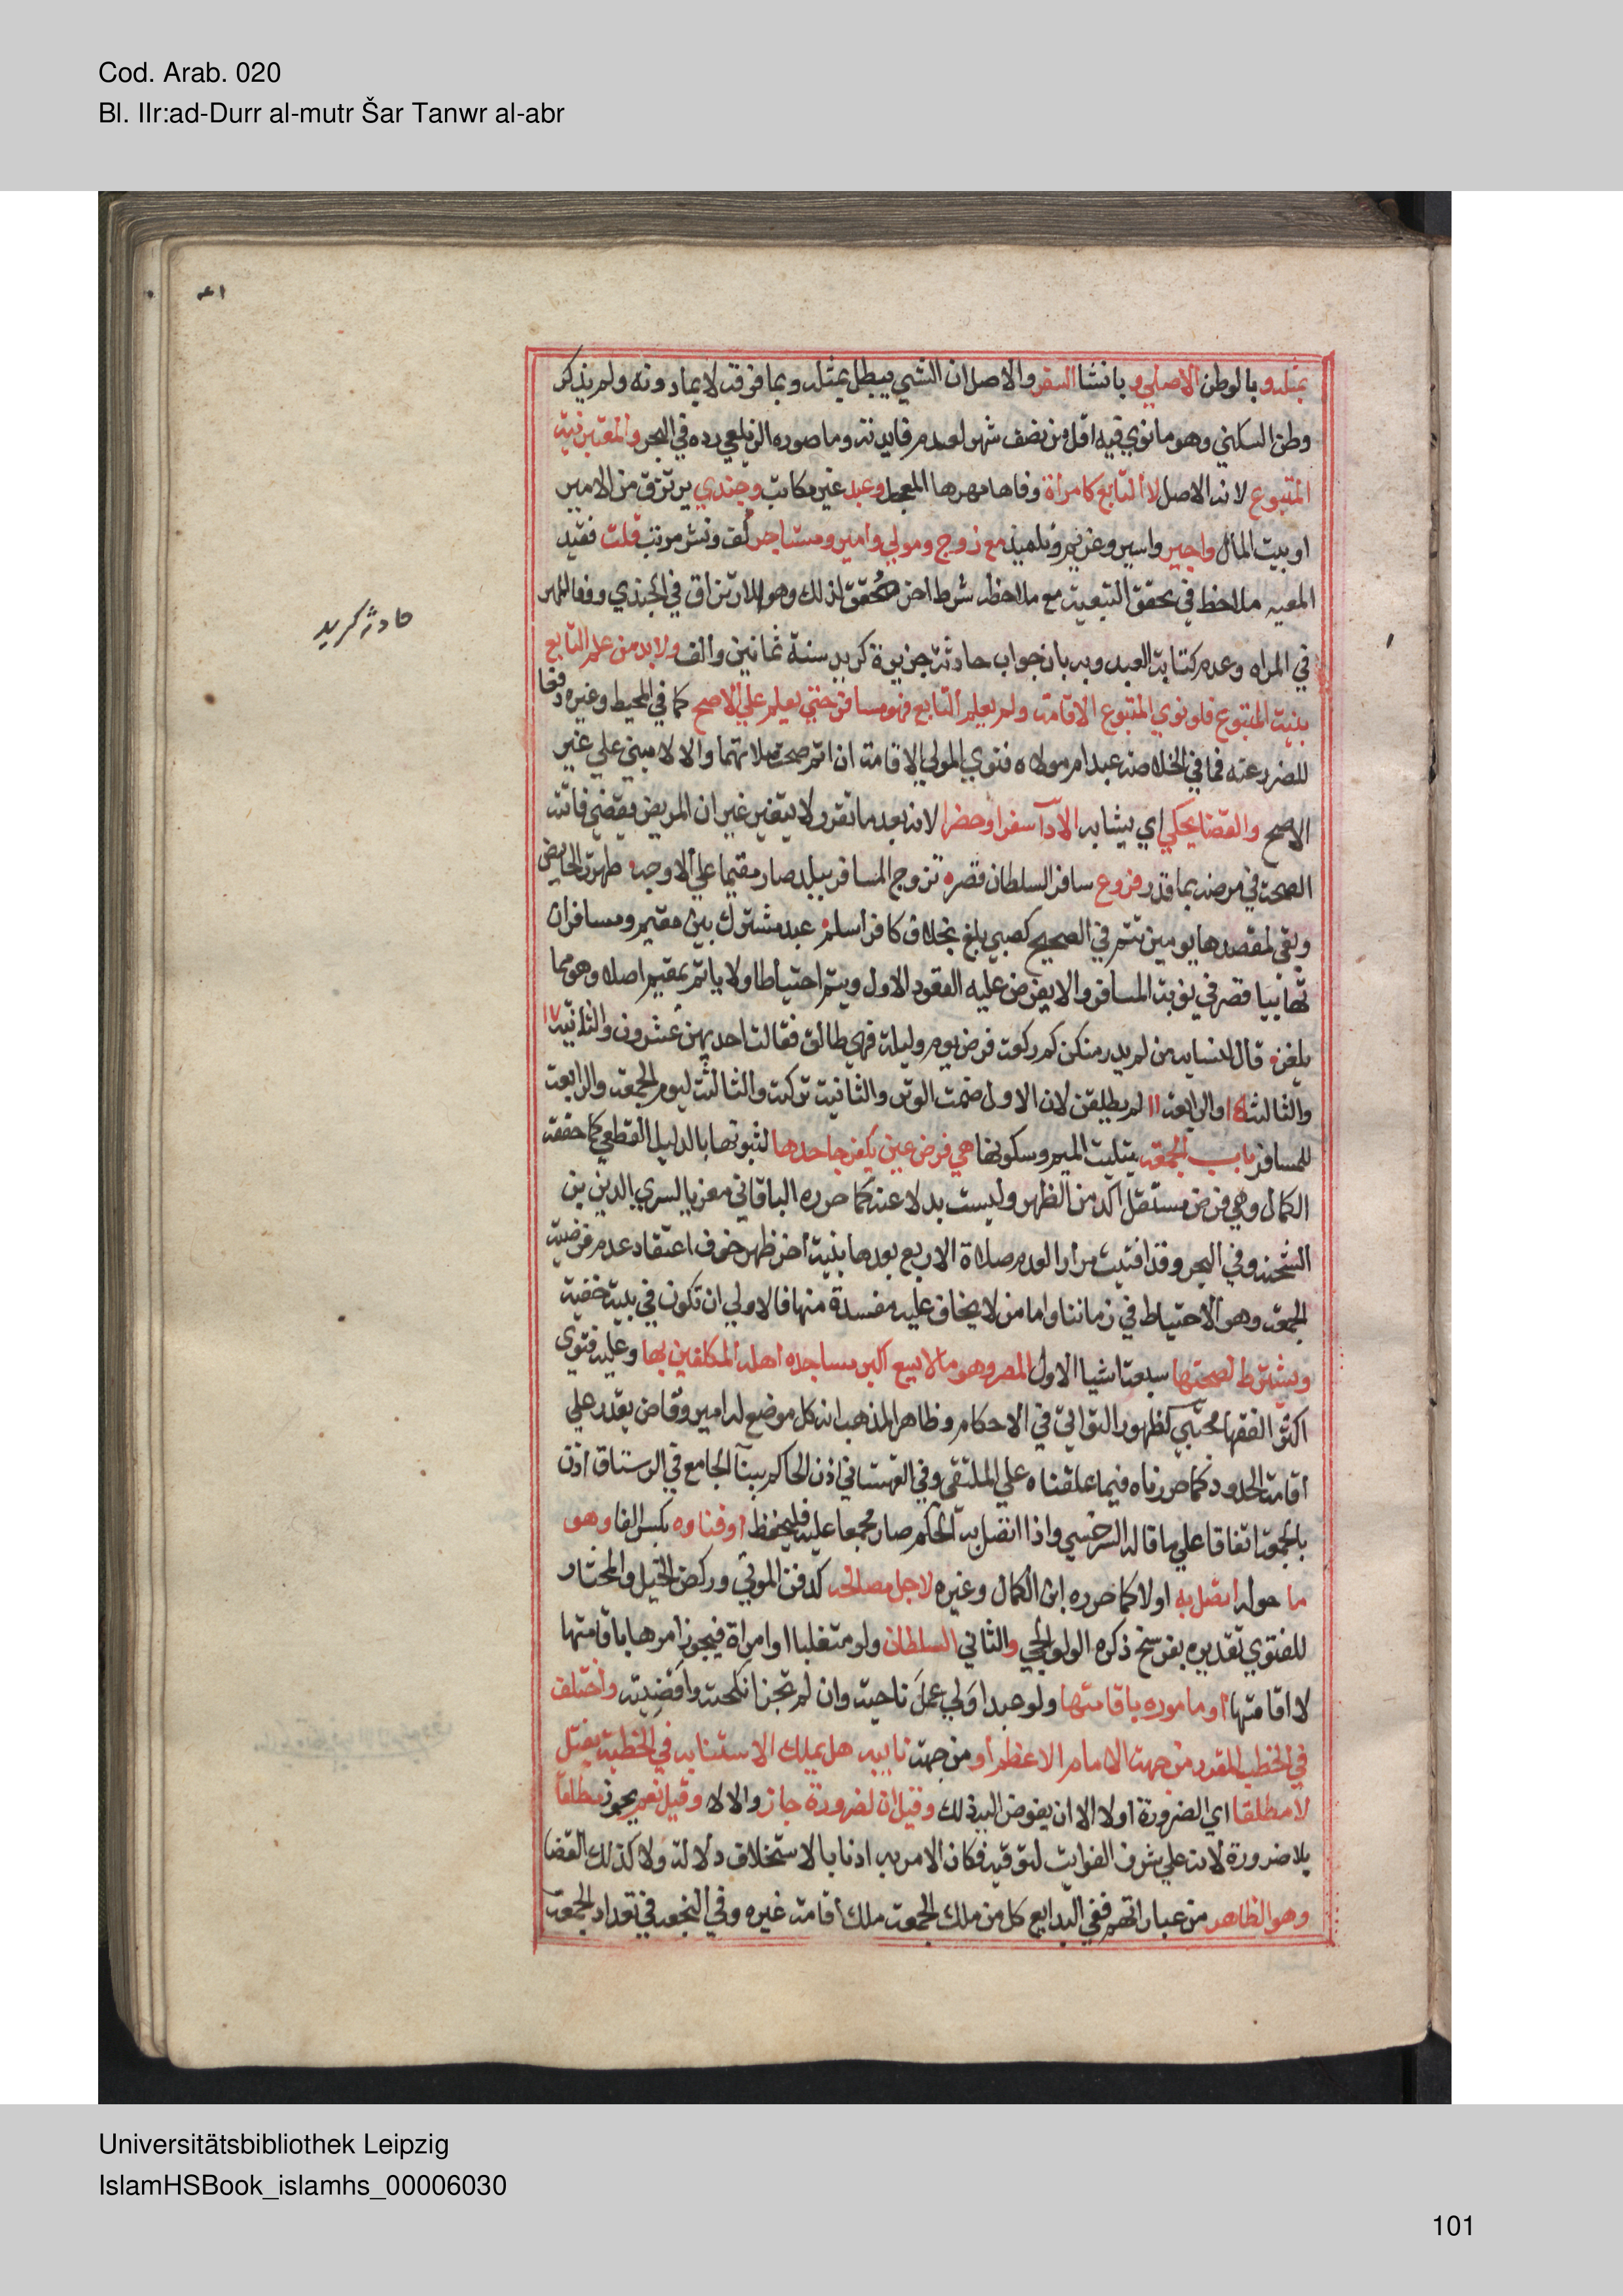 Cod. Arab. 020
Bl. IIr:ad-Durr al-mutr Šar Tanwr al-abr
بمثله و بالوطن الاصلي و بانشا السفر والاصل ان الشي يبطل بمثله وبما فوقه لا بما دونه ولم يذكر
وطن السكني وهو ما نوي فيه اقل من نصف شهر لعدم فايدته وما صوره الزيلعي رده في البحر والمعتبر نية
المتبوع لانه الاصل لا التابع كامراة وفاها مهرها المعجل وعبد غير مكاتب وجندي يرتزق من الامير
او بيت المال واجير واسير وغريم وتلميذ مع زوج ومولي وامير ومستاجر لف ونشر مرتب قلت فقيد
المعيه ملاحظ في تحقق التبعية مع ملاحظة شرط اخر محقق لذلك وهو الارتزاق في الجندي ووفا المهر
في المراه وعدم كتابة العبد وبه بان جواب حادثة جزيرة كريد سنة ثمانين والف ولا بد من علم التابع
حادثة كريد
بنية المتبوع فلو نوي المتبوع الاقامة ولم يعلم التابع فهو مسافر حتي يعلم علي الاصح كما في المحيط وغيره دفعا
للضرر عنه فما في الخلاصة عبد ام مولاه فنوي المولي الاقامة ان اتم صحت صلاتهما والا لا مبني علي غير
الاصح والقضا يحكي اي يشابه الادآ سفرا وحضرا لانه بعد ما تقرر لا يتغير غير ان المريض يقضي فائتة
الصحة في مرضه بما قدر فروع سافر السلطان قصر تزوج المسافر ببلد صار مقيما علي الاوجه طهرت الحايض
وبقي لمقصدها يومين تتم في الصحيح كصبي بلغ بخلاف كافر اسلم عبد مشترك بين مقيم ومسافر ان
تهاييا قصر في نوبة المسافر والا يفرض عليه القعود الاول ويتم احتياطا ولا ياتم بمقيم اصلا وهو مما
يلغز قال لنسايه من لم يدر منكن كم ركعة فرض يوم وليلة فهي طالق فقالت احديهن عشرون والثانية ١٧
والثالثة ١٥ والرابعة ١١ لم يطلقن لان الاول ضمت الوتر والثانية تركته والثالثة ليوم الجمعة والرابعة
للمسافر باب الجمعة بتثليث الميم وسكونها هي فرض عين يكفر جاحدها لثبوتها بالدليل القطعي كما حققه
الكمال وهي فرض مستقل اكد من الظهر وليست بدلا عنه كما حرره الباقاني معزيا لسري الدين بن
الشحنه وفي البحر وقد افتيت مرارا لعدم صلاة الاربع بعدها بنية اخر ظهر خوف اعتقاد عدم فرضية
الجمعة وهو الاحتياط في زماننا واما من لا يخاف عليه مفسدة منها فالاولي ان تكون في بيته خفية
ويشترط لصحتها سبعة اشيا الاول المصر وهو ما لا يسع اكبر مساجده اهله المكلفين بها وعليه فتوي
اكثر الفقها مجتبي لظهور التواني في الاحكام وظاهر المذهب انه كل موضع له امير وقاض يقدر علي
اقامة الحدود كما حررناه فيما علقناه علي الملتقي وفي القهستاني اذن الحاكم ببنآ الجامع في الرستاق اذن
بالجمعة اتفاقا علي ما قاله السرخسي واذا اتصل به الحكم صار مجمعا عليه فليحفظ او فناوه بكسر الفا وهو
ما حوله اتصل به اولا كما حرره ابن الكمال وغيره لاجل مصالحه كدفن الموتي وركض الخيل والمختار
للفتوي تقديره بفرسخ ذكره الولوالجي والثاني السلطان ولو متغلبا او امراة فيجوز امرها باقامتها
لا اقامتها او ماموره باقامتها ولو عبدا ولي عمل ناحية وان لم تجز انكحته واقضيته واختلف
في الخطيب المقرر من جهة الامام الاعظم او من جهة نايبه هل يملك الاستنابه في الخطبة فقيل
لا مطلقا اي الضرورة اولا الا ان يفوض اليه ذلك وقيل ان لضرورة جاز والا لا وقيل نعم يجوز مطلقا
بلا ضرورة لانه علي شرف الفوات لتوقته فكان الامر به اذنا بالاستخلاف دلالة ولا كذلك القضا
وهو الظاهر من عباراتهم ففي البدايع كل من ملك الجمعة ملك اقامة غيره وفي النجعه في تعداد الجمعة
Universitätsbibliothek Leipzig
IslamHSBook_islamhs_00006030
101